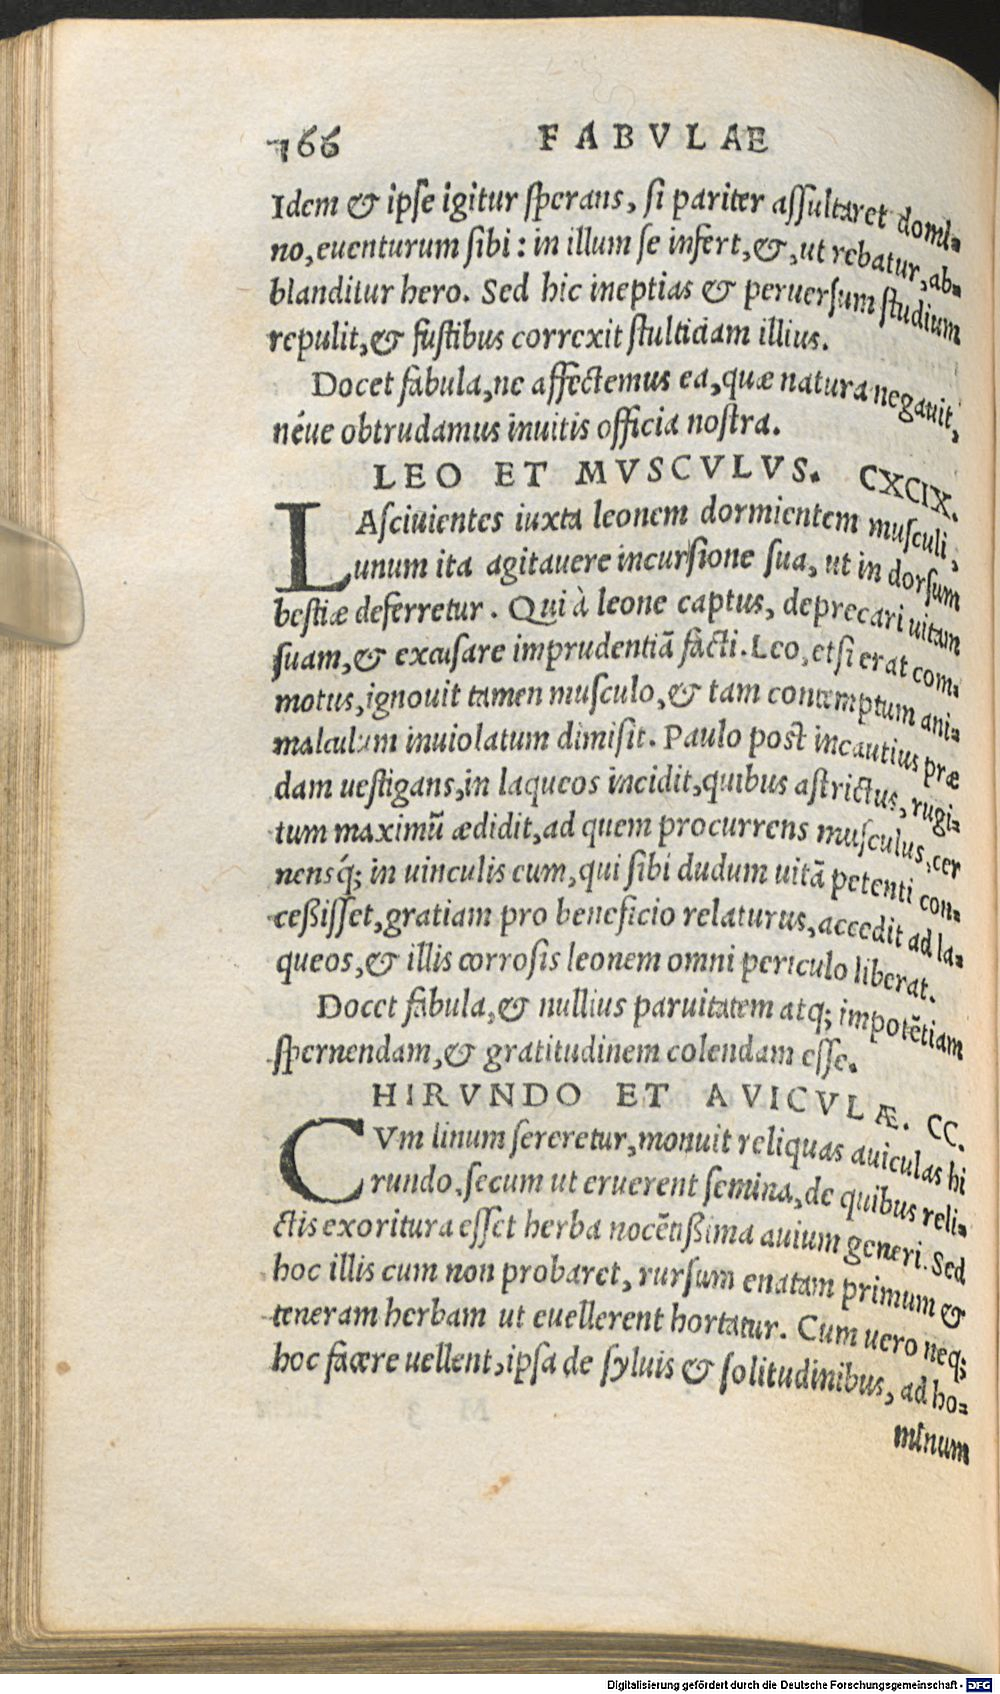 166 FABVLAE
Idem & ipse igitur sperans, si pariter assultaret domi-
no, euenturum sibi: in illum se infert, &, ut rebatur, ab-
blanditur hero. Sed hic ineptias & peruersum studium
repulit, & fustibus correxit stulticiam illius.
Docet fabula, ne affectemus ea, quæ natura negauit,
néue obtrudamus inuitis officia nostra.
LEO ET MVSCVLVS. CXCIX.
LAsciuientes iuxta leonem dormientem musculi,
unum ita agitauere incursione sua, ut in dorsum
bestiæ deferretur. Qui à leone captus, deprecari uitam
suam, & excusare imprudentiã facti. Leo, etsi erat com-
motus, ignouit tamen musculo, & tam contemptum ani-
malculum inuiolatum dimisit. Paulo post incautius præ
dam uestigans, in laqueos incidit, quibus astrictus, rugi-
tum maximũ ædidit, ad quem procurrens musculus, cer
nensq́; in uinculis eum, qui sibi dudum uitã petenti con-
ceßisset, gratiam pro beneficio relaturus, accedit ad la-
queos, & illis corrosis leonem omni periculo liberat.
Docet fabula, & nullius paruitatem atq; impotẽtiam
spernendam, & gratitudinem colendam esse.
HIRVNDO ET AVICVLÆ. CC.
CVm linum sereretur, monuit reliquas auiculas hi
rundo, secum ut eruerent semina, de quibus reli-
ctis exoritura esset herba nocẽtißima auium generi. Sed
hoc illis cum non probaret, rursum enatam primum &
teneram herbam ut euellerent hortatur. Cum uero neq;
hoc facere uellent, ipsa de syluis & solitudinibus, ad ho-
minum
Digitalisierung gefördert durch die Deutsche Forschungsgemeinschaft - DFG